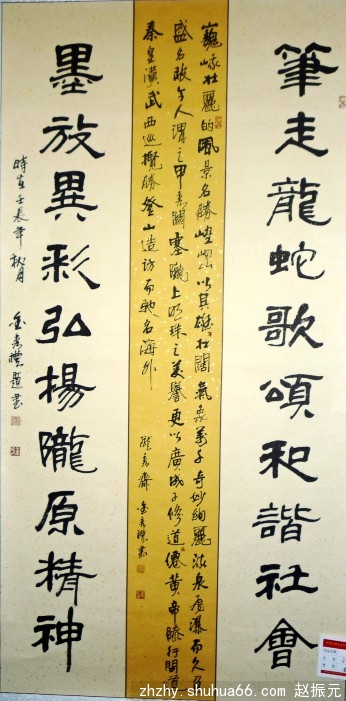 筆走龍蛇歌頌和諧社會
巍峨壯麗的風景名勝崆峒以其雄壯闊氣象萬千奇妙絢麗流泉飛瀑而久負
盛名故古人謂之甲秀關塞隴上明珠之美譽更以廣成子修道僊黃帝膝行問道
秦皇漢武西巡攬勝登山造訪而馳名海外
隴秀齋
墨放異彩弘揚隴原精神
時在壬辰年秋月
zhzhy.shuhua66.com 赵振元